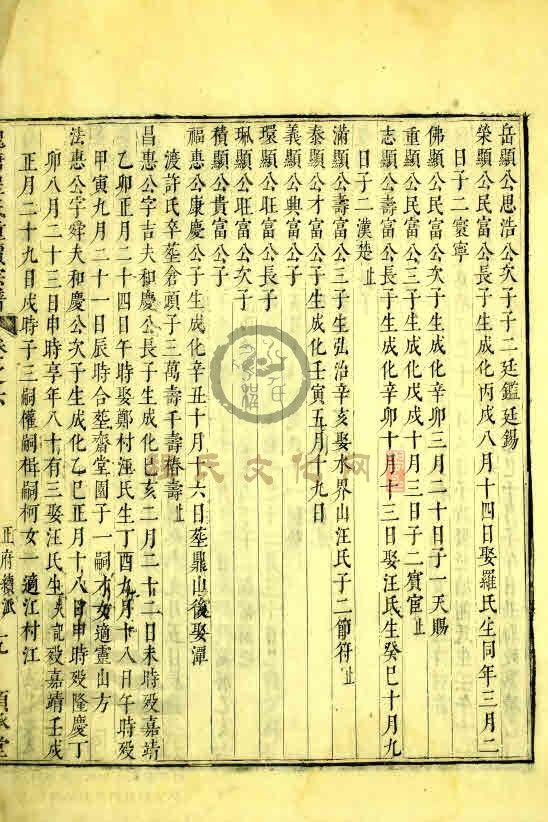 岳顯公思浩公次子子二廷鑑廷錫
榮顯公民富公長子生成化丙戌八月十四日娶羅氏生同年三月二
日子二寰寧
佛顯公民富公次子生成化辛卯三月二十日子一天賜
重顯公民富公三子生成化戊戌十月三日子二賓宦止
志顯公壽富公長子生成化辛卯十月十三日娶汪氏生癸巳十月九
日子二漢楚止
滿顯公壽富公三子生弘治辛亥娶水界山汪氏子二節符止
泰顯公才富公子生成化壬寅五月十九日
義顯公典富公子
環顯公旺富公長子
珮顯公旺富公次子
積顯公貴富公子
福惠公康慶公子生成化辛丑十月十六日塟鼎山後娶潭
渡許氏卒塟倉頭子三萬壽千壽椿壽止
昌惠公字吉夫和慶公長子生成化己亥二月二十二日未時殁嘉靖
乙卯正月二十四日午時娶鄭村汪氏生丁酉九月十八日午時殁
甲寅九月二十一日辰時合塟齋堂園子一嗣才女適靈山方
法惠公字舜夫和慶公次子生成化乙巳正月十八日申時殁隆慶丁
卯八月二十三日申時享年八十有三娶汪氏生失記殁嘉靖壬戌
正月二十九日戌時子三嗣權嗣楫嗣柯女一適江村江
卷之六
正府續派
文化网